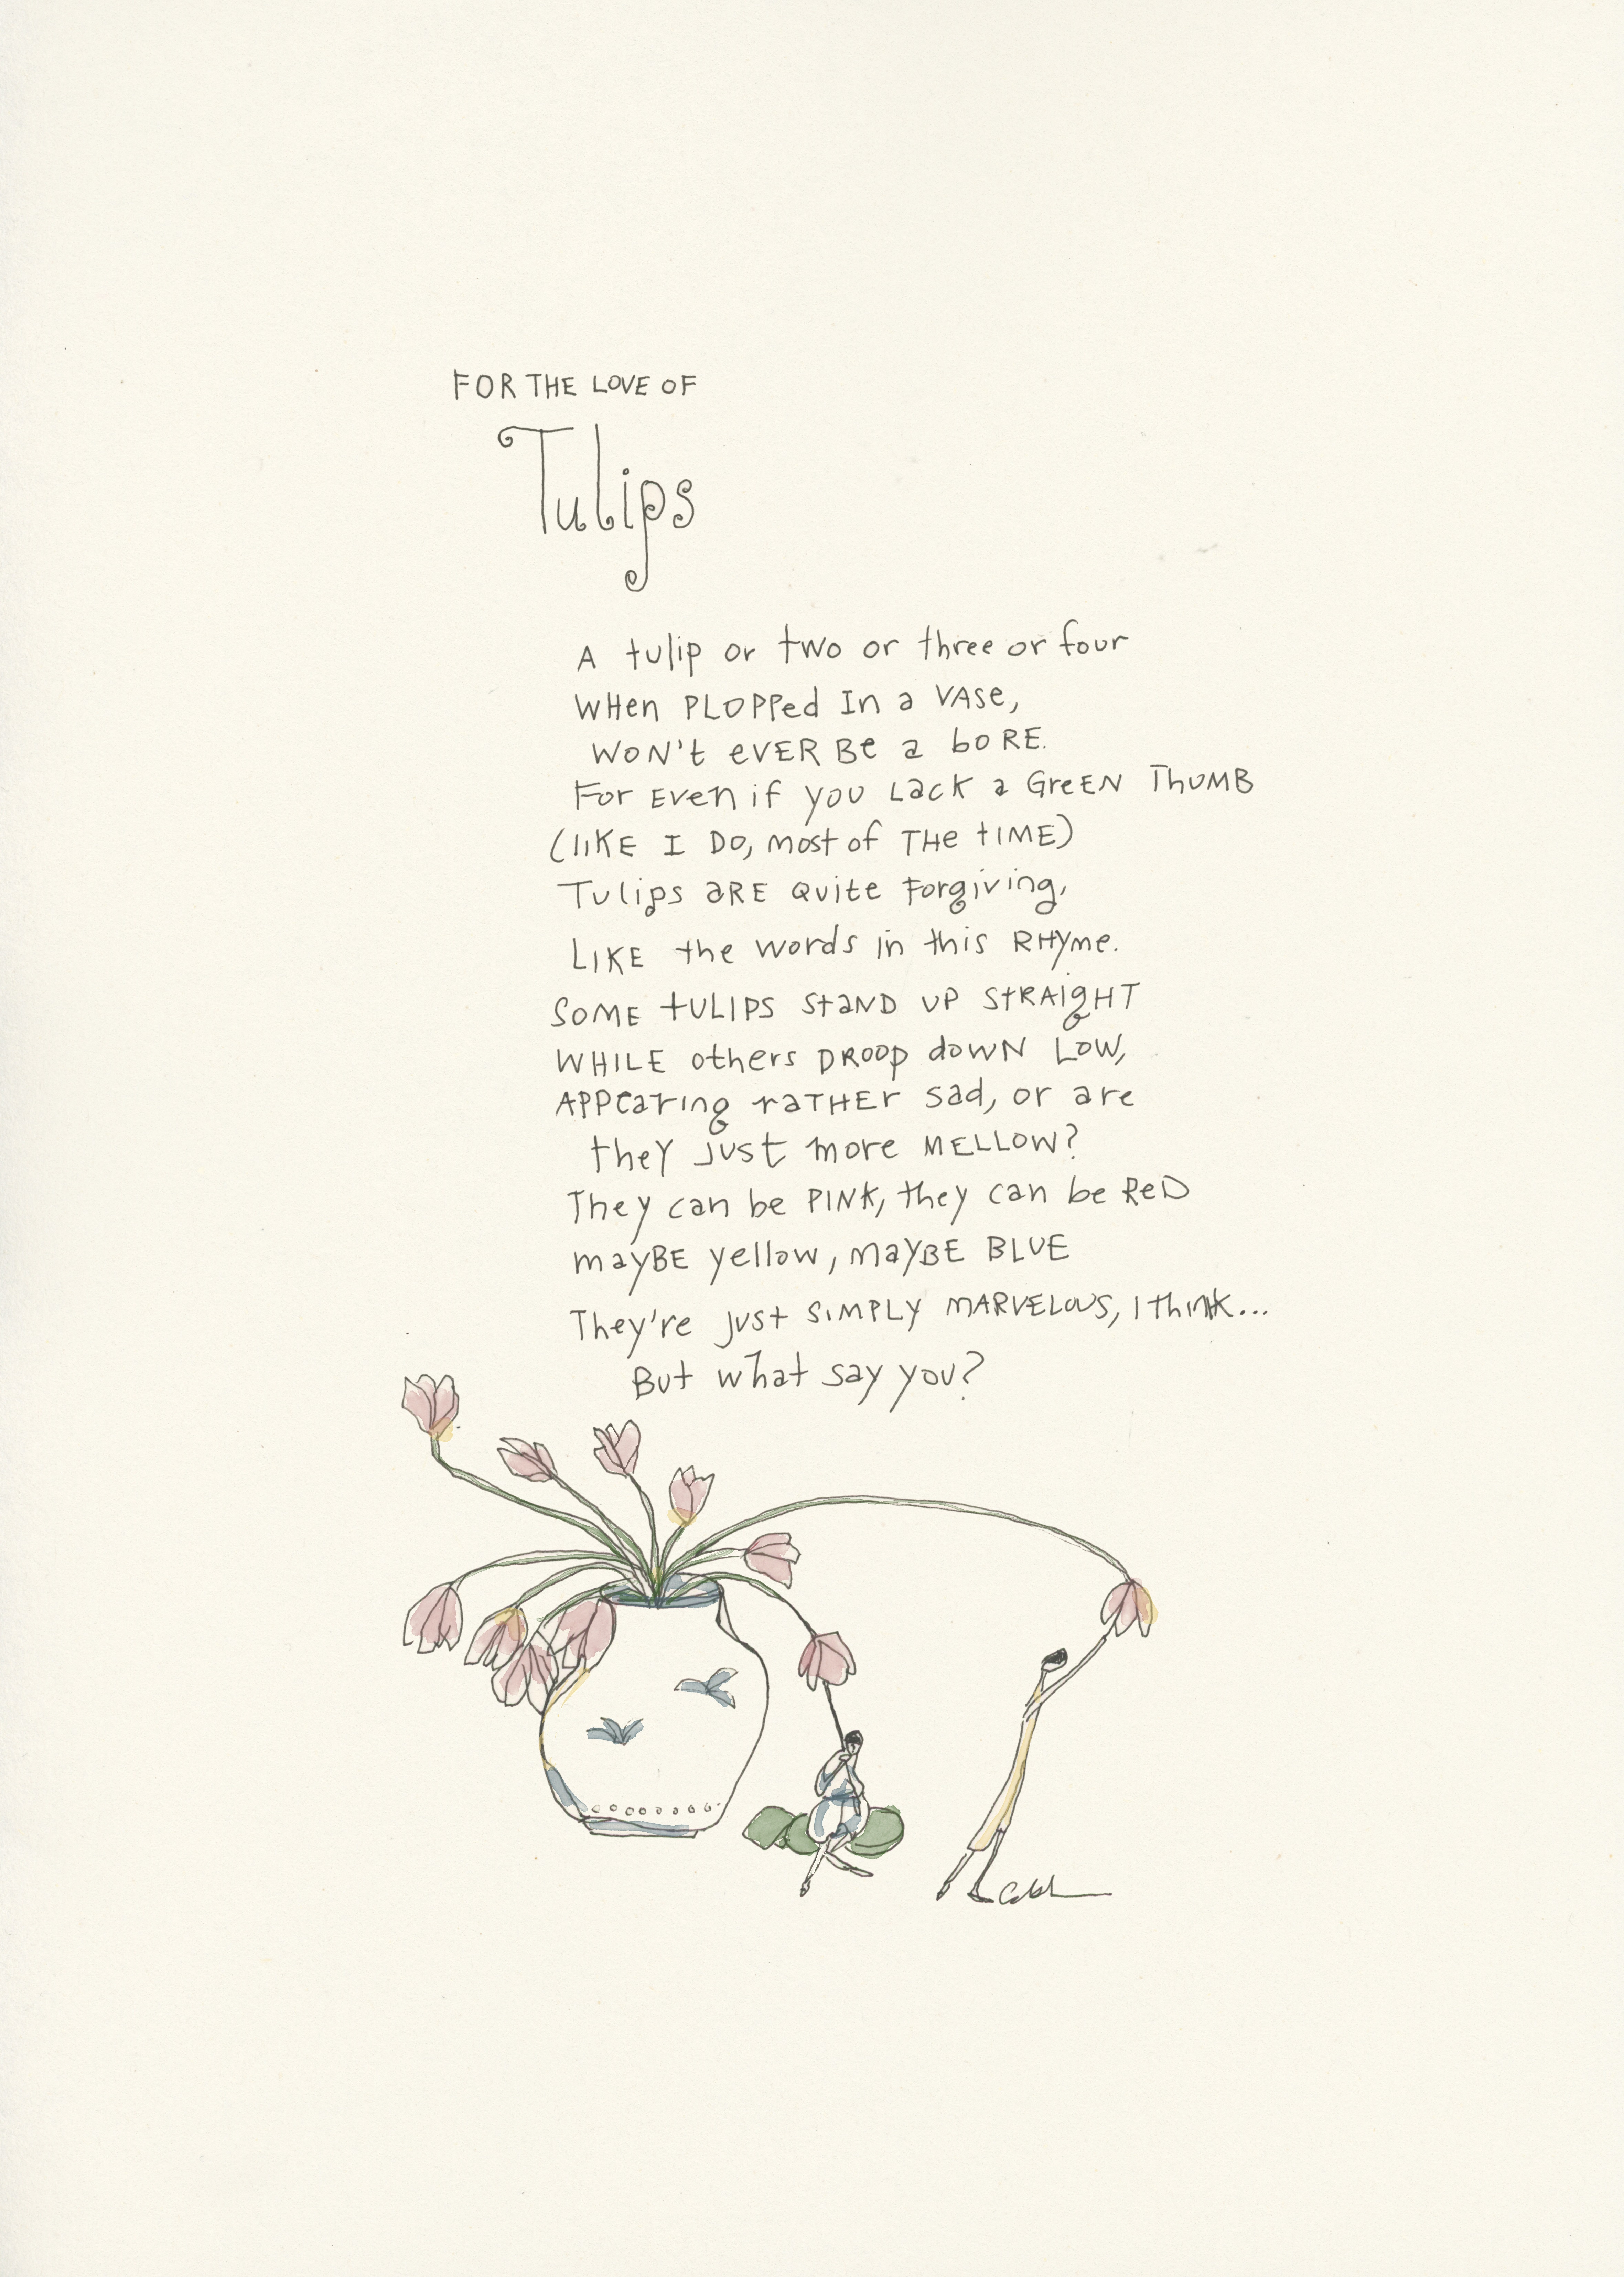 FOR THE LOVE OF
Tulips
A tulip or two or three or four
WHen PLOPPed In a VASe,
WON't eVER Be a boRE.
For Even if you Lack a GreEN ThUMB
(lIKE I Do, most of THe tIME)
Tulips aRE Quite Forgiving,
LIKE the words in this RHyme.
SOME tULIPS staND UP StRAIgHT
WHILE others DROOp dowN Low,
APPearing raTHEr sad, or are
theY just more MELLOW?
They can be PINK, they can be ReD
mayBE yellow, mayBE BLUE
They're just SIMPLY MARVELOUS, I think...
But what say you?